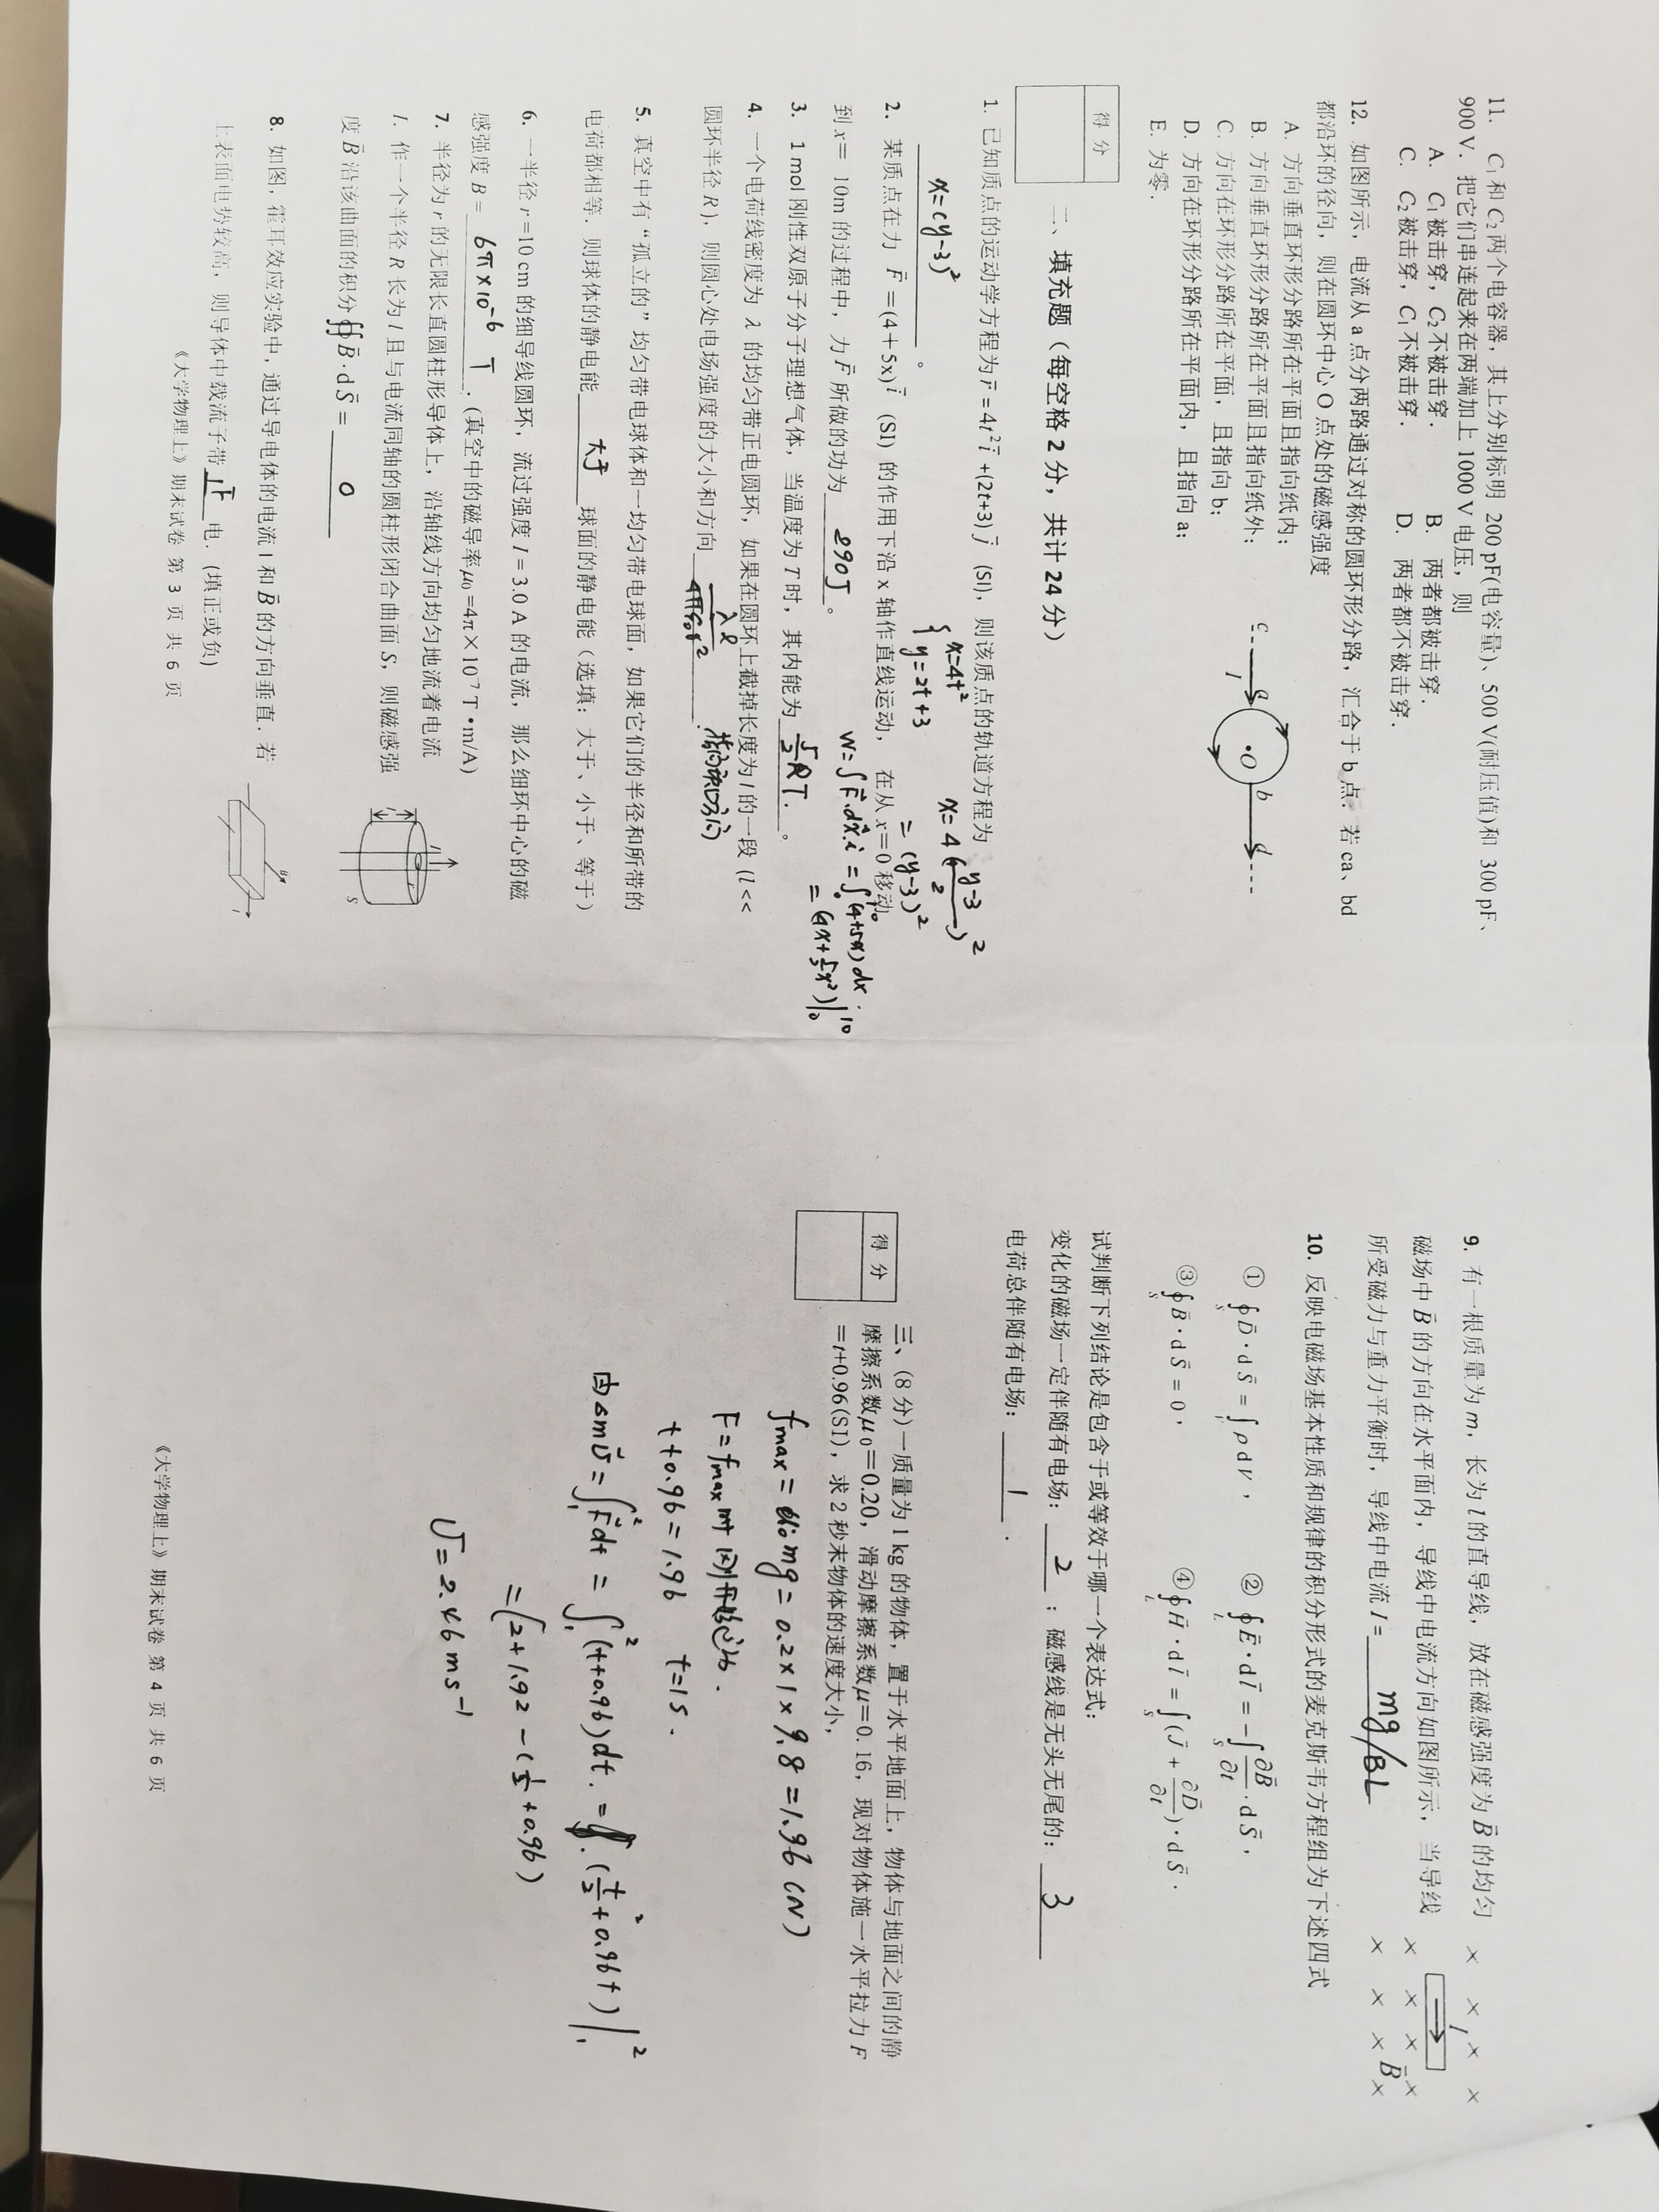 11. C₁和 C₂两个电容器，其上分别标明 200 pF(电容量)、500 V(耐压值)和 300 pF、
900 V．把它们串连起来在两端加上 1000 V 电压，则
A. C₁被击穿，C₂不被击穿． B. 两者都被击穿．
C. C₂被击穿，C₁不被击穿． D. 两者都不被击穿．
12. 如图所示，电流从 a 点分两路通过对称的圆环形分路，汇合于 b 点．若 ca、bd
都沿环的径向，则在圆环中心 O 点处的磁感强度
A. 方向垂直环形分路所在平面且指向纸内；
B. 方向垂直环形分路所在平面且指向纸外；
C. 方向在环形分路所在平面，且指向 b；
D. 方向在环形分路所在平面内，且指向 a；
E. 为零．
c a I •O b d
得 分
二、填充题（每空格 2 分，共计 24 分）
1. 已知质点的运动学方程为 r⃗ = 4t² i⃗ +(2t+3) j⃗ (SI)，则该质点的轨道方程为
x=(y-3)² 。
{ x=4t²
y=2t+3
x= 4 (y-3/2)²
= (y-3)²
2. 某质点在力 F⃗ =(4＋5x) i⃗ (SI) 的作用下沿 x 轴作直线运动， 在从 x＝0 移动
到 x＝ 10m 的过程中，力 F⃗ 所做的功为 290J 。
W=∫F⃗.dx⃗.i =∫₀¹⁰(4+5x)dx
= (4x+5/2x²)|₀¹⁰
3. 1 mol 刚性双原子分子理想气体，当温度为 T 时，其内能为 5/2 RT. 。
4. 一个电荷线密度为 λ 的均匀带正电圆环，如果在圆环上截掉长度为 l 的一段 (l <<
圆环半径 R)，则圆心处电场强度的大小和方向 λl/4πε₀r² . 指向缺口方向
5. 真空中有“孤立的”均匀带电球体和一均匀带电球面，如果它们的半径和所带的
电荷都相等．则球体的静电能 大于 球面的静电能（选填：大于、小于、等于）
6. 一半径 r =10 cm 的细导线圆环，流过强度 I = 3.0 A 的电流，那么细环中心的磁
感强度 B = 6π×10⁻⁶ T ．(真空中的磁导率μ₀ =4π×10⁻⁷ T•m/A)
7. 半径为 r 的无限长直圆柱形导体上，沿轴线方向均匀地流着电流
I．作一个半径 R 长为 l 且与电流同轴的圆柱形闭合曲面 S，则磁感强
度 B⃗ 沿该曲面的积分∯B⃗·dS⃗ = 0
I r l S
8. 如图，霍耳效应实验中，通过导电体的电流 I 和 B⃗ 的方向垂直．若
上表面电势较高，则导体中载流子带 正 电．(填正或负)
B I
《大学物理上》期末试卷 第 3 页 共 6 页
9. 有一根质量为 m，长为 l 的直导线，放在磁感强度为 B⃗ 的均匀
磁场中 B⃗ 的方向在水平面内，导线中电流方向如图所示，当导线
所受磁力与重力平衡时，导线中电流 I = mg/BL
× × × ×
I
× × × ×
× × × B⃗ ×
10. 反映电磁场基本性质和规律的积分形式的麦克斯韦方程组为下述四式
① ∮_S D⃗·dS⃗ = ∫_V ρdV， ② ∮_L E⃗·dl⃗ = -∫_S ∂B⃗/∂t·dS⃗，
③ ∮_S B⃗·dS⃗ = 0， ④ ∮_L H⃗·dl⃗ = ∫_S (J⃗ + ∂D⃗/∂t)·dS⃗．
试判断下列结论是包含于或等效于哪一个表达式：
变化的磁场一定伴随有电场： 2 ；磁感线是无头无尾的： 3
电荷总伴随有电场： 1 ．
得 分
三、(8 分)一质量为 1 kg 的物体，置于水平地面上，物体与地面之间的静
摩擦系数μ₀＝0.20，滑动摩擦系数μ＝0.16，现对物体施一水平拉力 F
＝t+0.96(SI)，求 2 秒末物体的速度大小，
fmax = μ₀mg = 0.2×1×9.8 =1.96 (N)
F= fmax 时 刚开始运动.
t+0.96 = 1.96 t=1s.
由 △mv⃗ = ∫₁²F⃗dt = ∫₁²(t+0.96)dt. = (t²/2+0.96t)|₁²
=[2+1.92 -(1/2+0.96)
v=2.46 ms⁻¹
《大学物理上》期末试卷 第 4 页 共 6 页